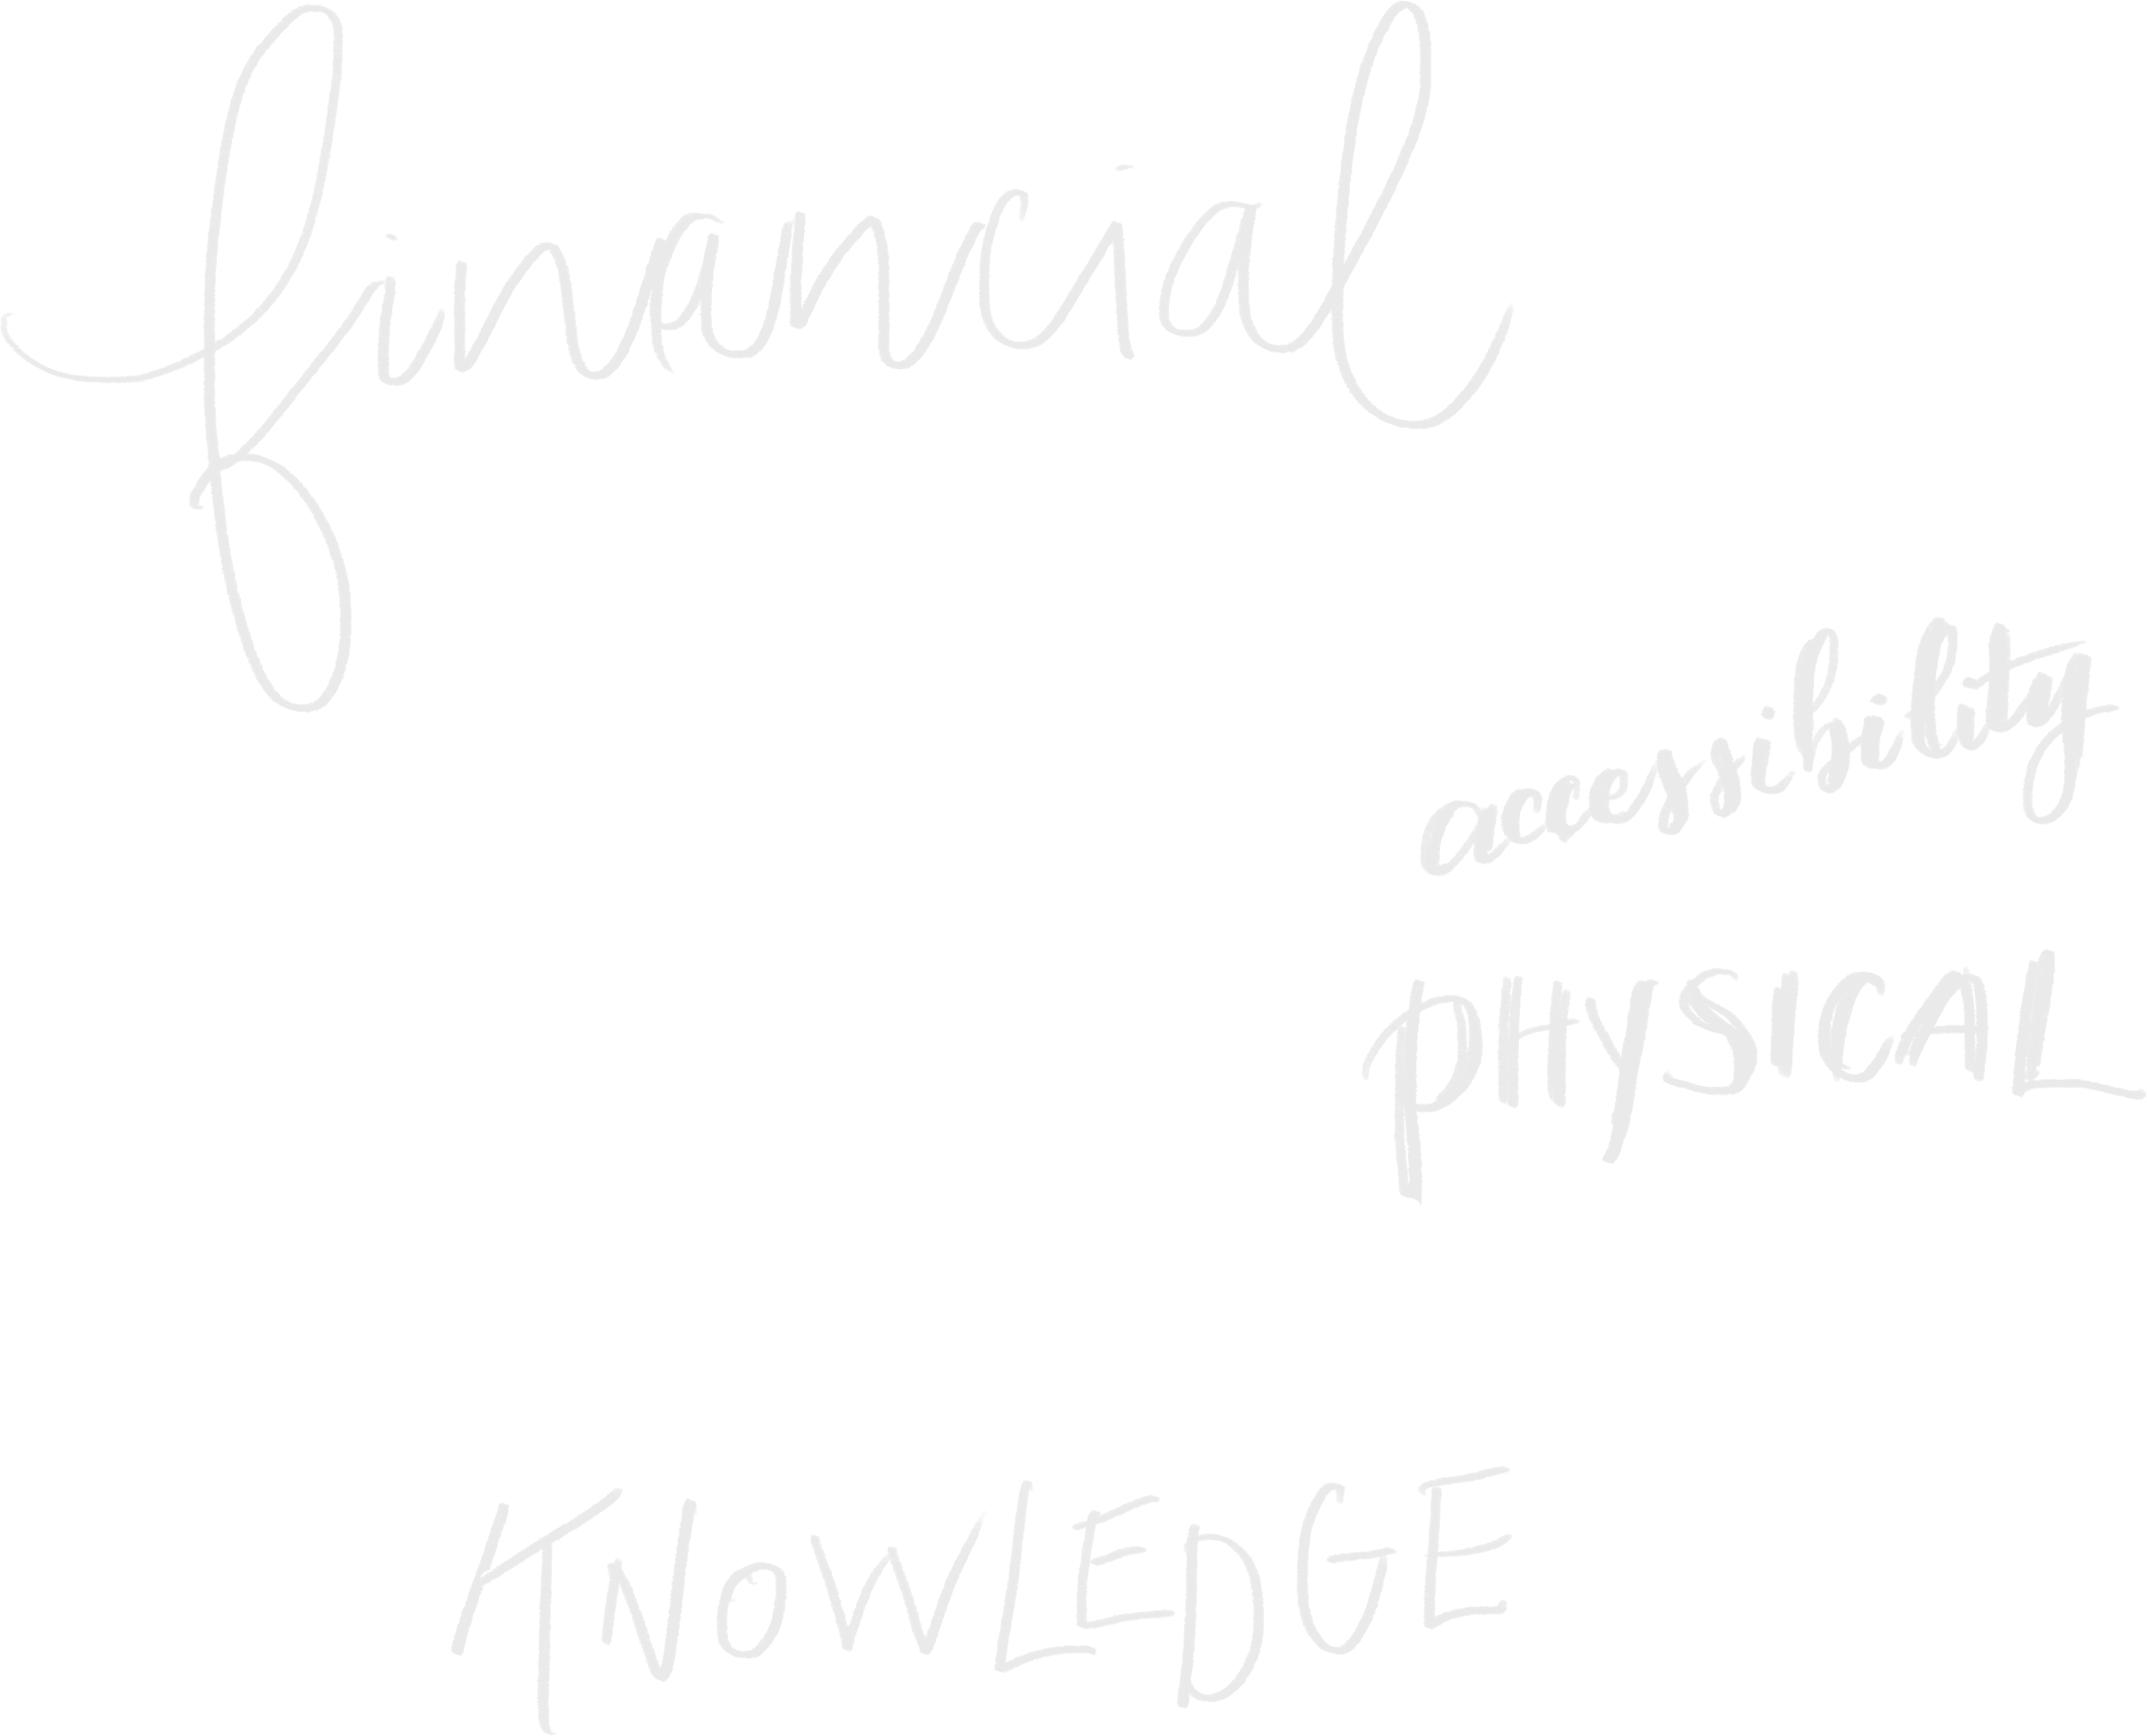 financial
accessibility
PHYSICAL
KNOWLEDGE